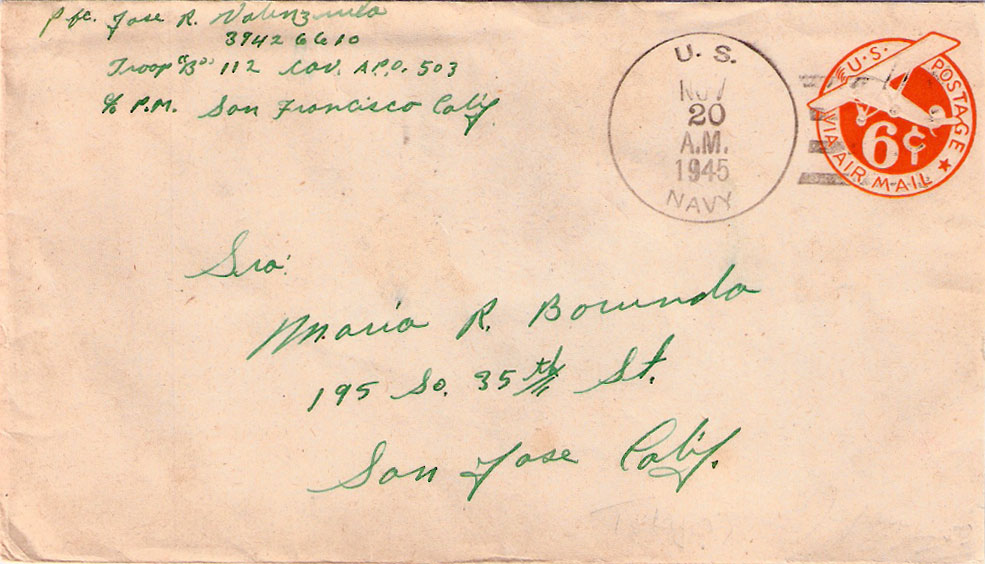 Pfc. Jose R. Valenzuela
39426610
Troop "B" 112 Cav. A.P.O. 503
c/o P.M. San Francisco Calif.
U.S.
NOV
20
A.M.
1945
NAVY
U.S. POSTAGE
6¢
VIA AIR MAIL
Sra:
Maria R. Borunda
195 So. 35th St.
San Jose Calif.